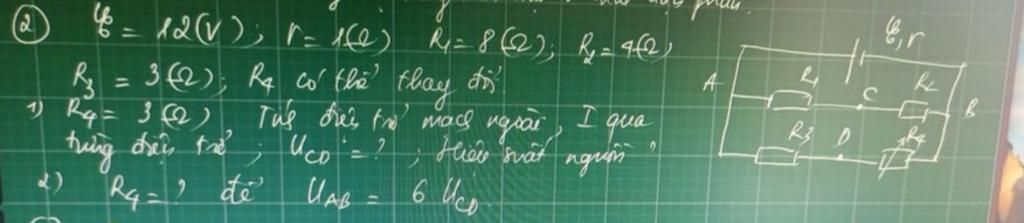 ② ℰ = 12(V); r = 1(Ω) R₁ = 8(Ω); R₂ = 4(Ω)
R₃ = 3(Ω); R₄ có thể thay đổi
1) R₄ = 3(Ω) Tính điện trở mạch ngoài, I qua
từng điện trở; U_CD = ?; Hiệu suất nguồn?
2) R₄ = ? để U_AB = 6 U_CD
ℰ, r
A R₁ C R₂ B
R₃ D R₄